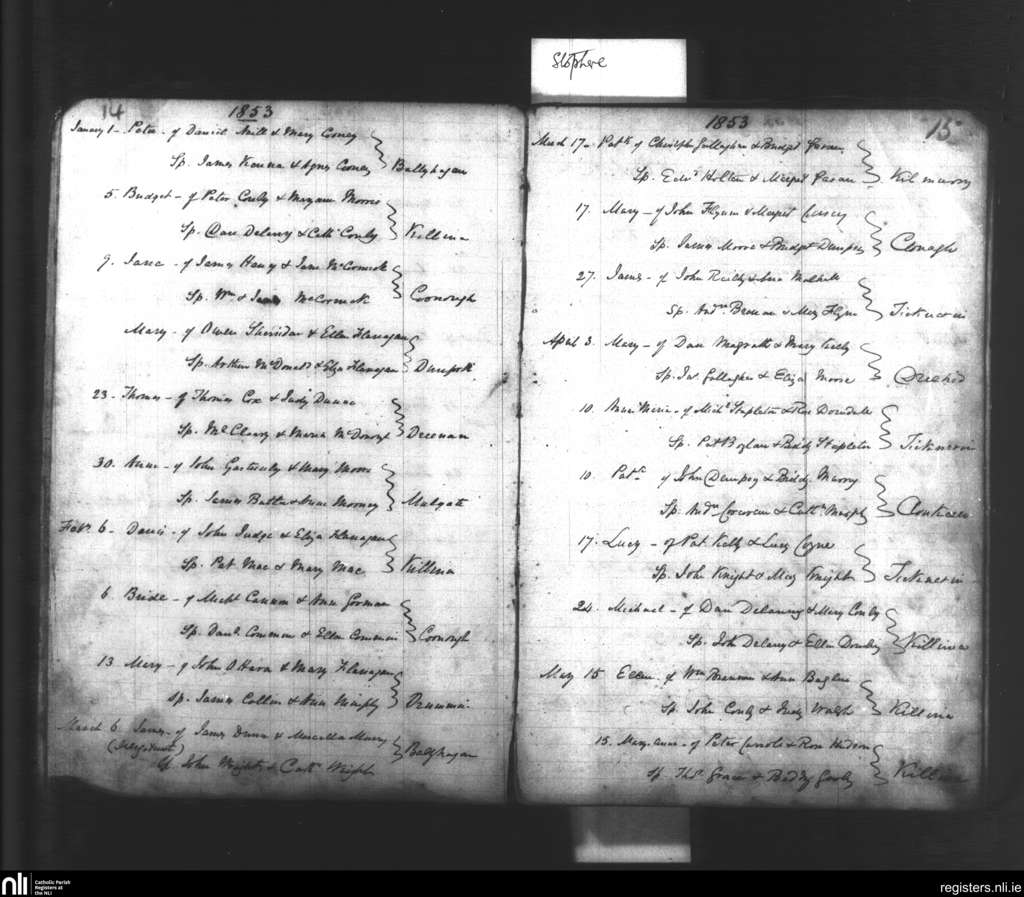 14
1853
January 1 - Peter - of Daniel Mill & Mary Cooney
Sp. James Kenna & Agnes Cooney Ballyhagan
5. Bridget - of Peter Conly & Maryann Moore
Sp. Dan Delany & Cath Conly Killina
9. Jane - of James Heavy & Jane McCormick
Sp. Wm & Jane McCormick Coonough
Mary - of Owen Sheridan & Ellen Flanagan
Sp. Arthur McDonald & Eliza Flanagan
23 - Thomas - of Thomas Cox & Judy Dunne
Sp. Ml Cleary & Maria
30. Anne - of John & Mary Moore
Sp. James & Anne Mooney
Feby. 6 - of John Judge & Eliza Flanagan
Sp. Pat Mac & Mary Mac Killina
6 Bride - of Michl Cannon & Ann Gorman
Sp. Danl. Common & Ellen Common Coonough
13 Mary - of John O Hara & Mary Flanagan
Sp. James Collin & Ann Drummin
March 6 James - of James Dunn &
(Illegitimate)
Sp. John Wright & Cath Wright Ballyhagan
Slóphere
1853
15
March 17 - Patk of Christopher Gallagher & Bridget
Sp. Edwd. Holten & Margret Kilmurry
17. Mary - of John Flynn & Margret Casey
Sp. James Moore & Bridget Dempsey Clonagh
27. James - of John Reilly & Ann
Sp. Andw. Brennan & Mary Flynn Ticknevin
April 3. Mary - of Dan Magrath & Mary
Sp. Js. Gallagher & Eliza Moore
10. Anne Maria - of Michl Stapleton & Rose
Sp. Pat Boylan & Biddy Stapleton Ticknevin
10. Patk of John Dempsy & Biddy Murry
Sp. Andw Corcoran & Cathn Murphy
17. Lucy - of Pat Kelly & Lucy Coyne
Sp. John Knight & Mary Knight Ticknevin
24. Michael - of Dan Delanny & Mary Conly
Sp. John Delany & Ellen Killina
May 15 Ellen of Wm Brennan & Ann
Sp. John Conly & Judy Walsh Killina
15. Mary anne - of Peter & Rose
Sp. Ths. Grace & Biddy Killina
nli
Catholic Parish
Registers at
the NLI
registers.nli.ie